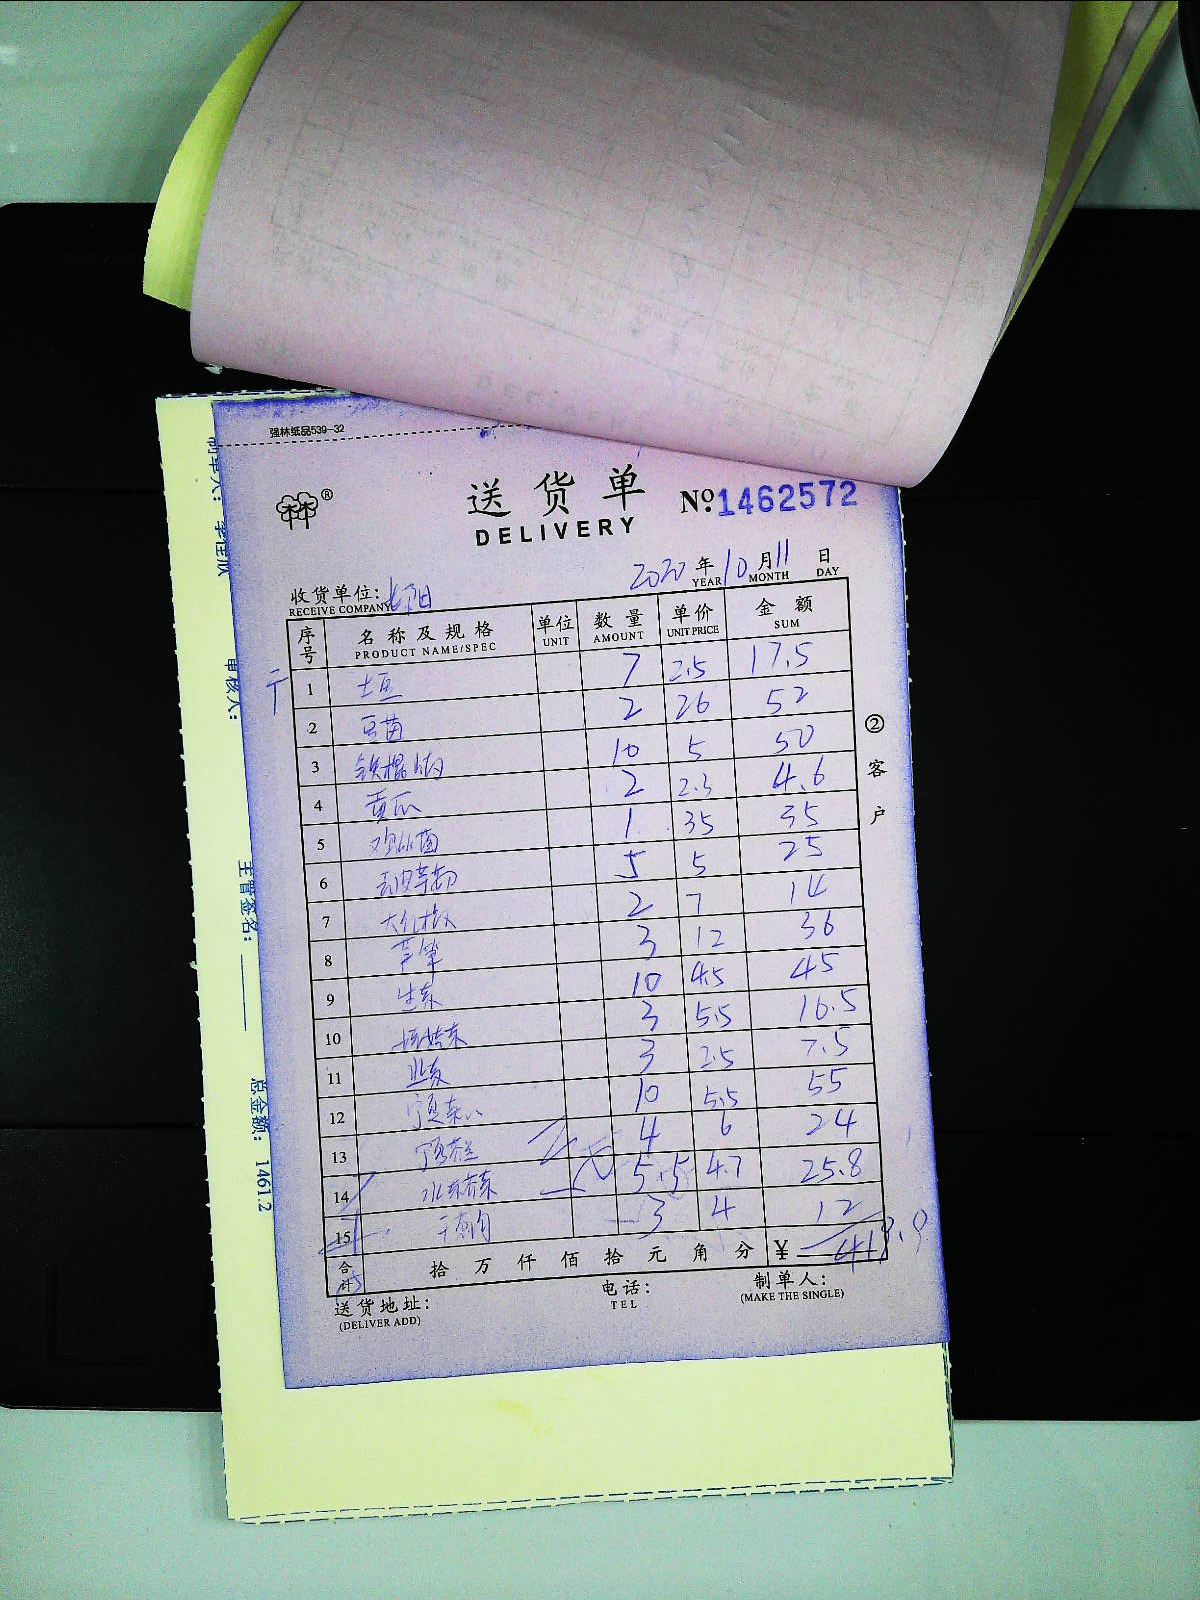 强林纸品539-32
送货单
DELIVERY
№1462572
2020年10月11日
YEAR MONTH DAY
收货单位:
RECEIVE COMPANY
序号 名称及规格 单位 数量 单价 金额
PRODUCT NAME/SPEC UNIT AMOUNT UNIT PRICE SUM
1 土豆 7 2.5 17.5
2 豆苗 2 26 52
3 铁棍山药 10 5 50
4 黄瓜 2 2.3 4.6
5 鸡丝菌 1 35 35
6 5 5 25
7 大红椒 2 7 14
8 3 12 36
9 生菜 10 4.5 45
10 3 5.5 16.5
11 3 2.5 7.5
12 10 5.5 55
13 4 6 24
14 5.5 4.7 25.8
15 3 4 12
合计 拾万仟佰拾元角分 ¥ 419.9
送货地址:
(DELIVER ADD)
电话:
TEL
制单人:
(MAKE THE SINGLE)
②客户
审核人:
主管签名:
总金额: 1461.2